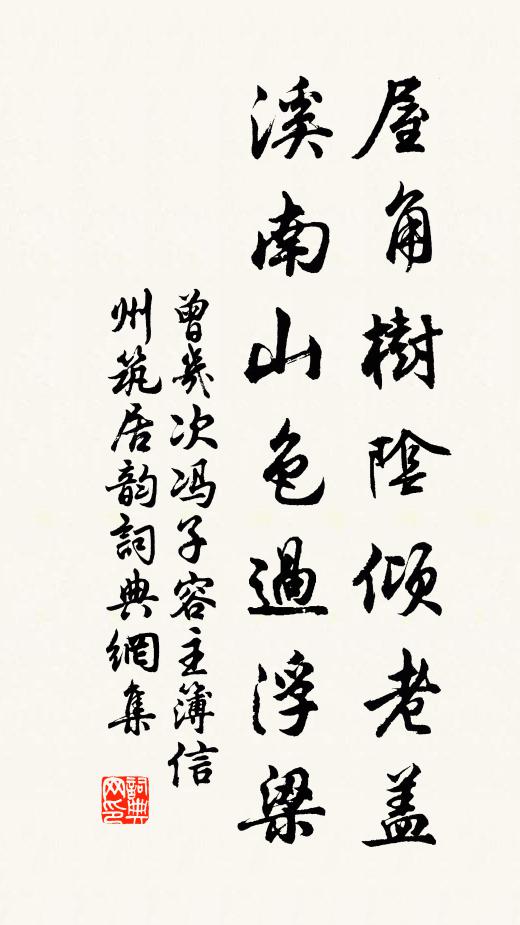 屋角樹陰傾老盖
溪南山色過浮梁
曾幾次冯子容主簿信
州筑居韵詞典網集
詞典网印